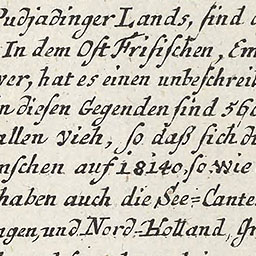 Pudjadinger Lands, sind
In dem Ost Frisischen, Em
ver, hat es einen unbeschreib
n diesen Gegenden sind 560
allen vieh, so daß sich di
nschen auf 18140, so wie
haben auch die See=Cante
ngen, und Nord=Holland, Gr